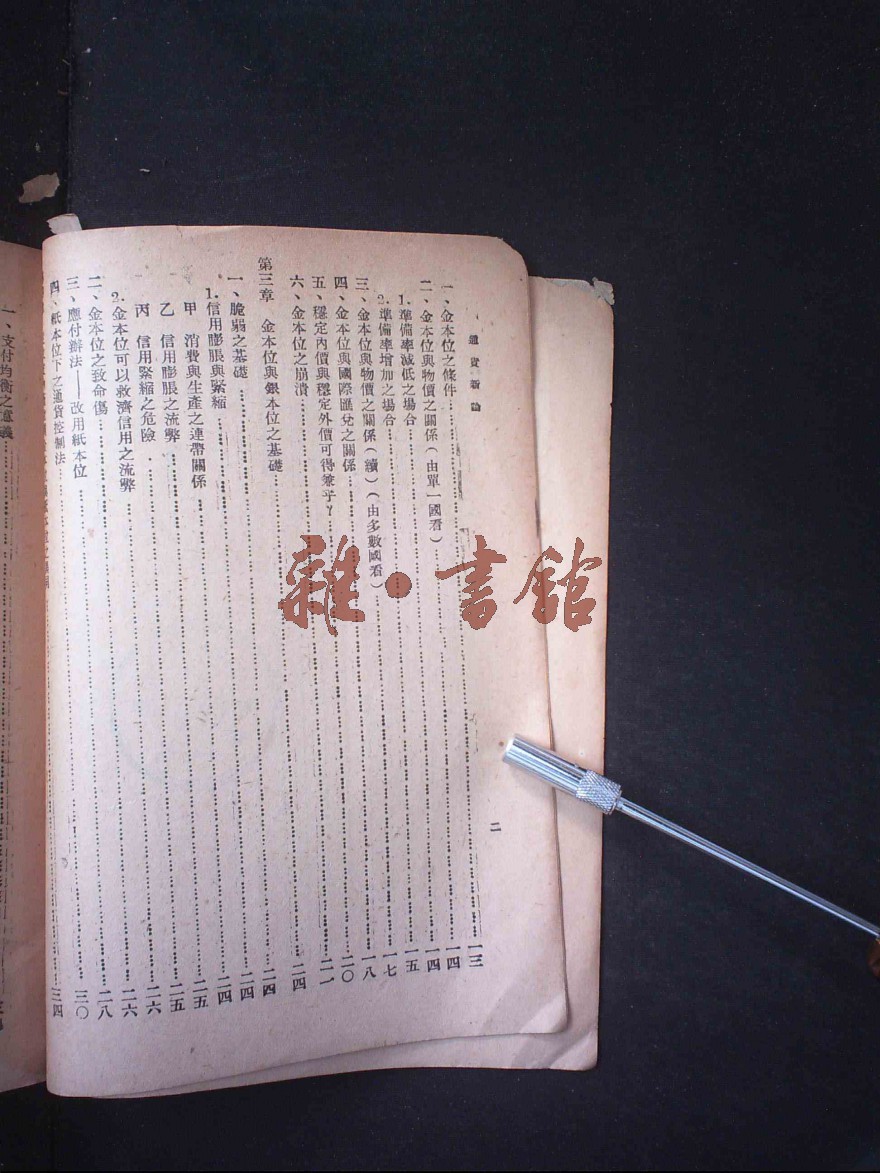 通貨新論
二
一三
一、金本位之條件……一四
二、金本位與物價之關係(由單一國看)……一四
1.準備率減低之場合……一五
2.準備率增加之場合……一七
三、金本位與物價之關係(續)(由多數國看)……一八
四、金本位與國際匯兌之關係……二〇
五、穩定內價與穩定外價可得兼乎?……二一
六、金本位之崩潰……二四
第三章 金本位與銀本位之基礎……二四
一、脆弱之基礎……二四
1.信用膨脹與緊縮……二四
甲 消費與生產之連帶關係……二五
乙 信用膨脹之流弊……二五
丙 信用緊縮之危險……二六
2.金本位可以救濟信用之流弊……二六
二、金本位之致命傷……二八
三、應付辦法——改用紙本位……三〇
四、紙本位下之通貨控制法……三四
一、支付均衡之意義……
雜·書館